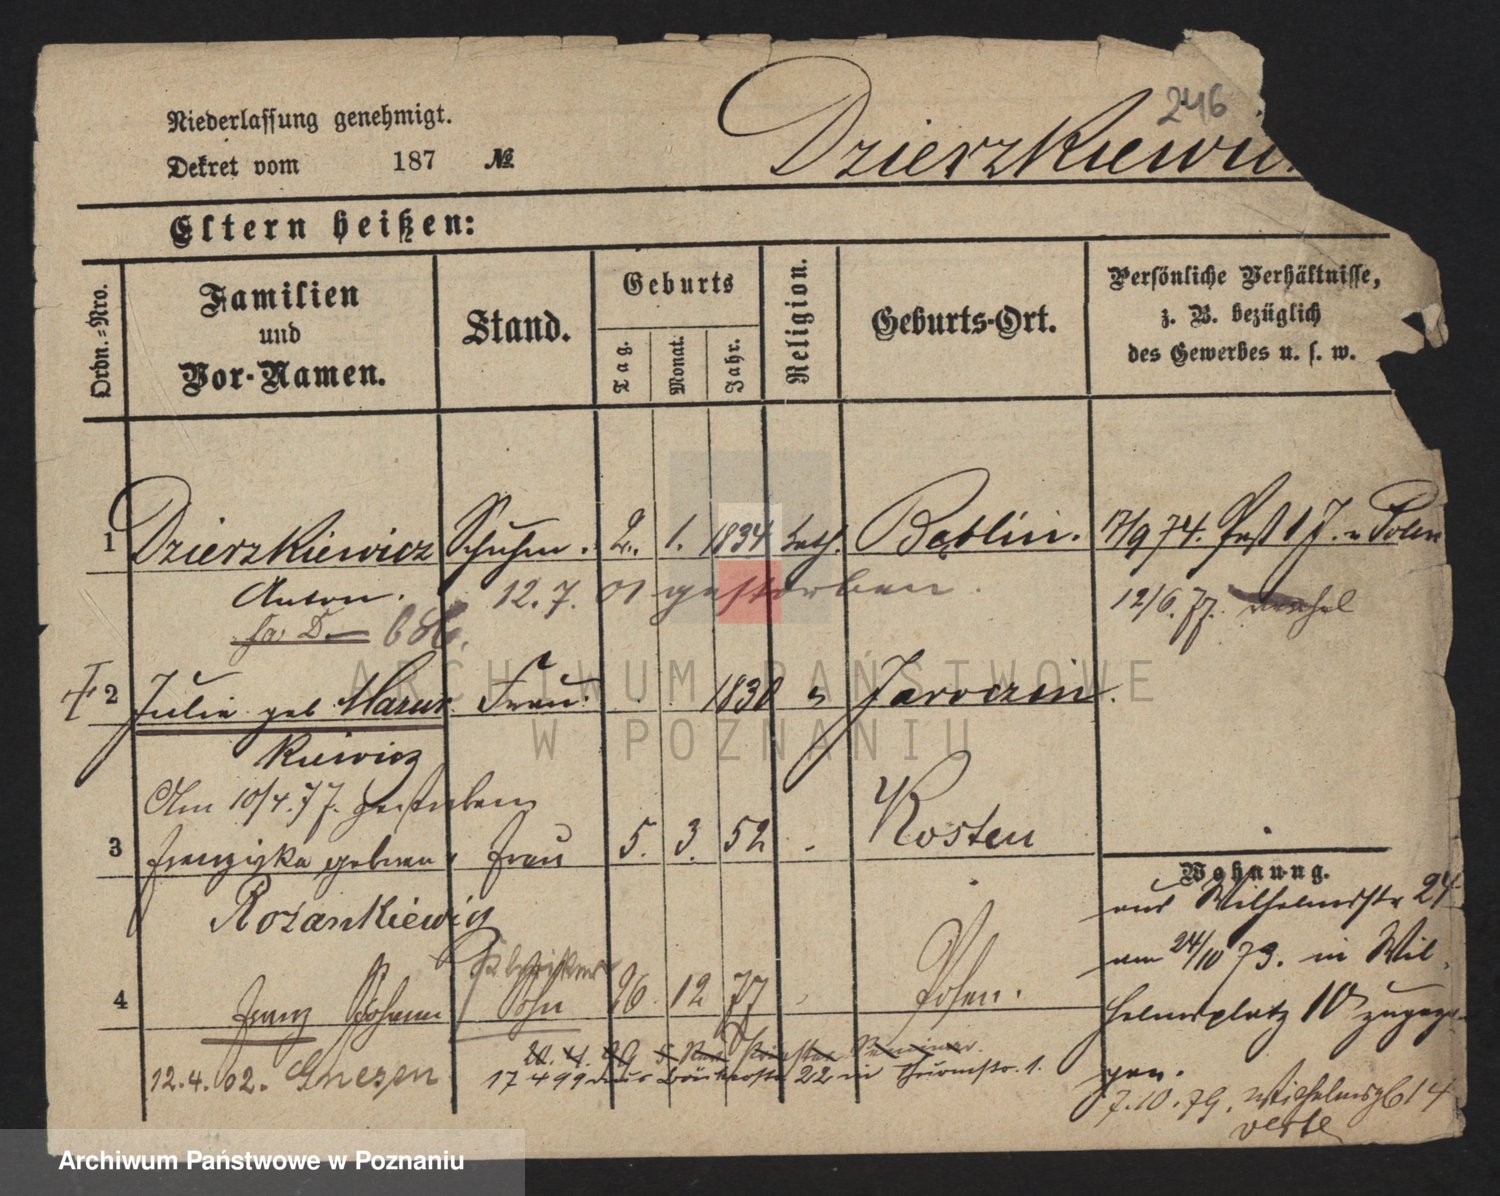 246
Niederlassung genehmigt.
Dekret vom 187 №
Dzierzkiewic
Eltern heißen:
Ordn.-Nro.
Familien
und
Vor-Namen.
Stand.
Geburts
Tag.
Monat.
Jahr.
Religion.
Geburts-Ort.
Persönliche Verhältnisse,
z. B. bezüglich
des Gewerbes u. s. w.
1 Dzierzkiewicz Schuhm. 2. 1. 1834 kath. 17/9 74. 1 J. Polen
Anton. 12.7.01 gestorben. 12/6.77.
2 Julie geb Mazur Frau. 1830 Jaroczin.
kiewicz
Am 10/4.77. gestorben
3 Franziska geborene Frau 5. 3. 52 Kosten
Rozankiewicz
Wohnung.
aus Wilhelmstr 24
am 24/10 73. in Wil
helmsplatz 10 zugezo
gen.
4 Franz Johann Sohn 26. 12 77 Posen.
12.4.02. Gnesen
17 4 99 aus 22 in Thurmstr. 1.
7.10.79. Wilhelmspl 14
verte
ARCHIWUM PAŃSTWOWE
W POZNANIU
Archiwum Państwowe w Poznaniu